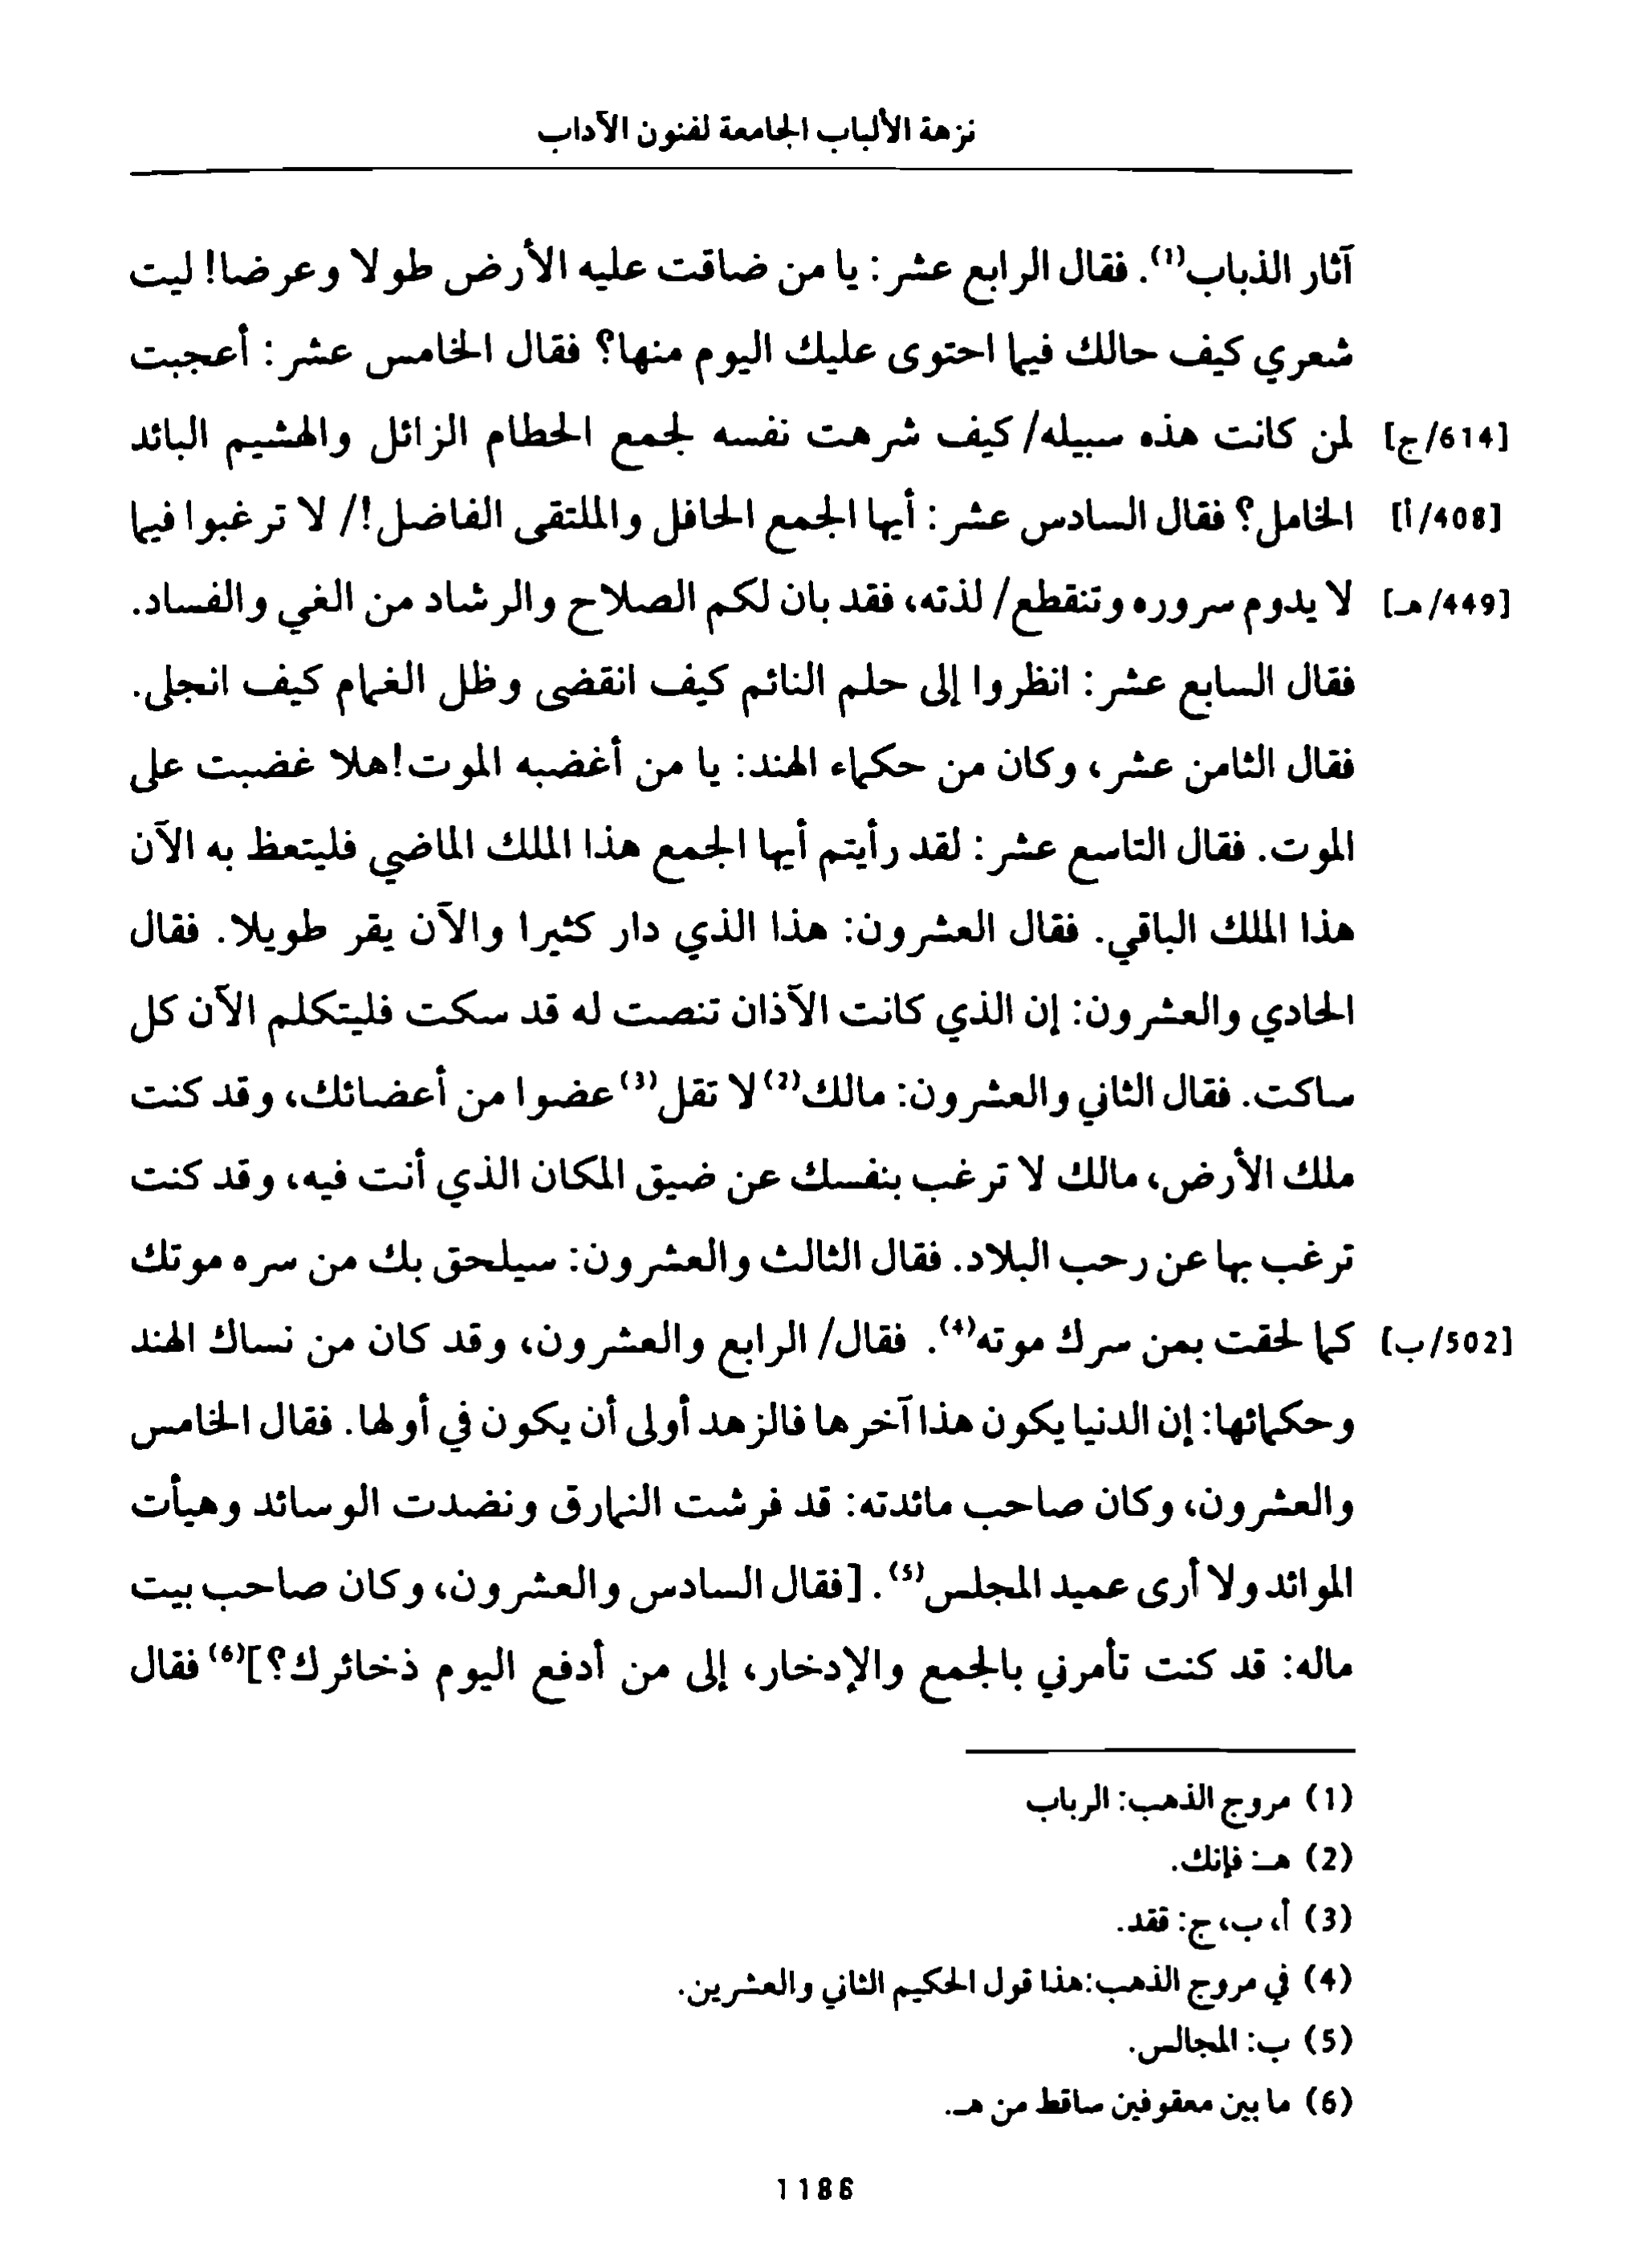 نزهة الألباب الجامعة لفنون الآداب
آثار الذباب(1). فقال الرابع عشر: يا من ضاقت عليه الأرض طولا وعرضا! ليت
شعري كيف حالك فيما احتوى عليك اليوم منها؟ فقال الخامس عشر: أعجبت
[614/ج] لمن كانت هذه سبيله/ كيف شرهت نفسه لجمع الحطام الزائل والهشيم البائد
[408/أ] الخامل؟ فقال السادس عشر: أيها الجمع الحافل والملتقى الفاضل!/ لا ترغبوا فيما
[449/هـ] لا يدوم سروره وتنقطع/ لذته، فقد بان لكم الصلاح والرشاد من الغي والفساد.
فقال السابع عشر: انظروا إلى حلم النائم كيف انقضى وظل الغمام كيف انجلى.
فقال الثامن عشر، وكان من حكماء الهند: يا من أغضبه الموت!هلا غضبت على
الموت. فقال التاسع عشر: لقد رأيتم أيها الجمع هذا الملك الماضي فليتعظ به الآن
هذا الملك الباقي. فقال العشرون: هذا الذي دار كثيرا والآن يقر طويلا. فقال
الحادي والعشرون: إن الذي كانت الآذان تنصت له قد سكت فليتكلم الآن كل
ساكت. فقال الثاني والعشرون: مالك(2) لا تقل(3) عضوا من أعضائك، وقد كنت
ملك الأرض، مالك لا ترغب بنفسك عن ضيق المكان الذي أنت فيه، وقد كنت
ترغب بها عن رحب البلاد. فقال الثالث والعشرون: سيلحق بك من سره موتك
[502/ب] كما لحقت بمن سرك موته(4). فقال/ الرابع والعشرون، وقد كان من نساك الهند
وحكمائها: إن الدنيا يكون هذا آخرها فالزهد أولى أن يكون في أولها. فقال الخامس
والعشرون، وكان صاحب مائدته: قد فرشت النمارق ونضدت الوسائد وهيأت
الموائد ولا أرى عميد المجلس(5). [فقال السادس والعشرون، وكان صاحب بيت
ماله: قد كنت تأمرني بالجمع والإدخار، إلى من أدفع اليوم ذخائرك؟](6) فقال
(1) مروج الذهب: الرباب
(2) هـ: فإنك.
(3) أ، ب، ج: فقد.
(4) في مروج الذهب:هذا قول الحكيم الثاني والعشرين.
(5) ب: المجالس.
(6) ما بين معقوفين ساقط من هـ.
1186